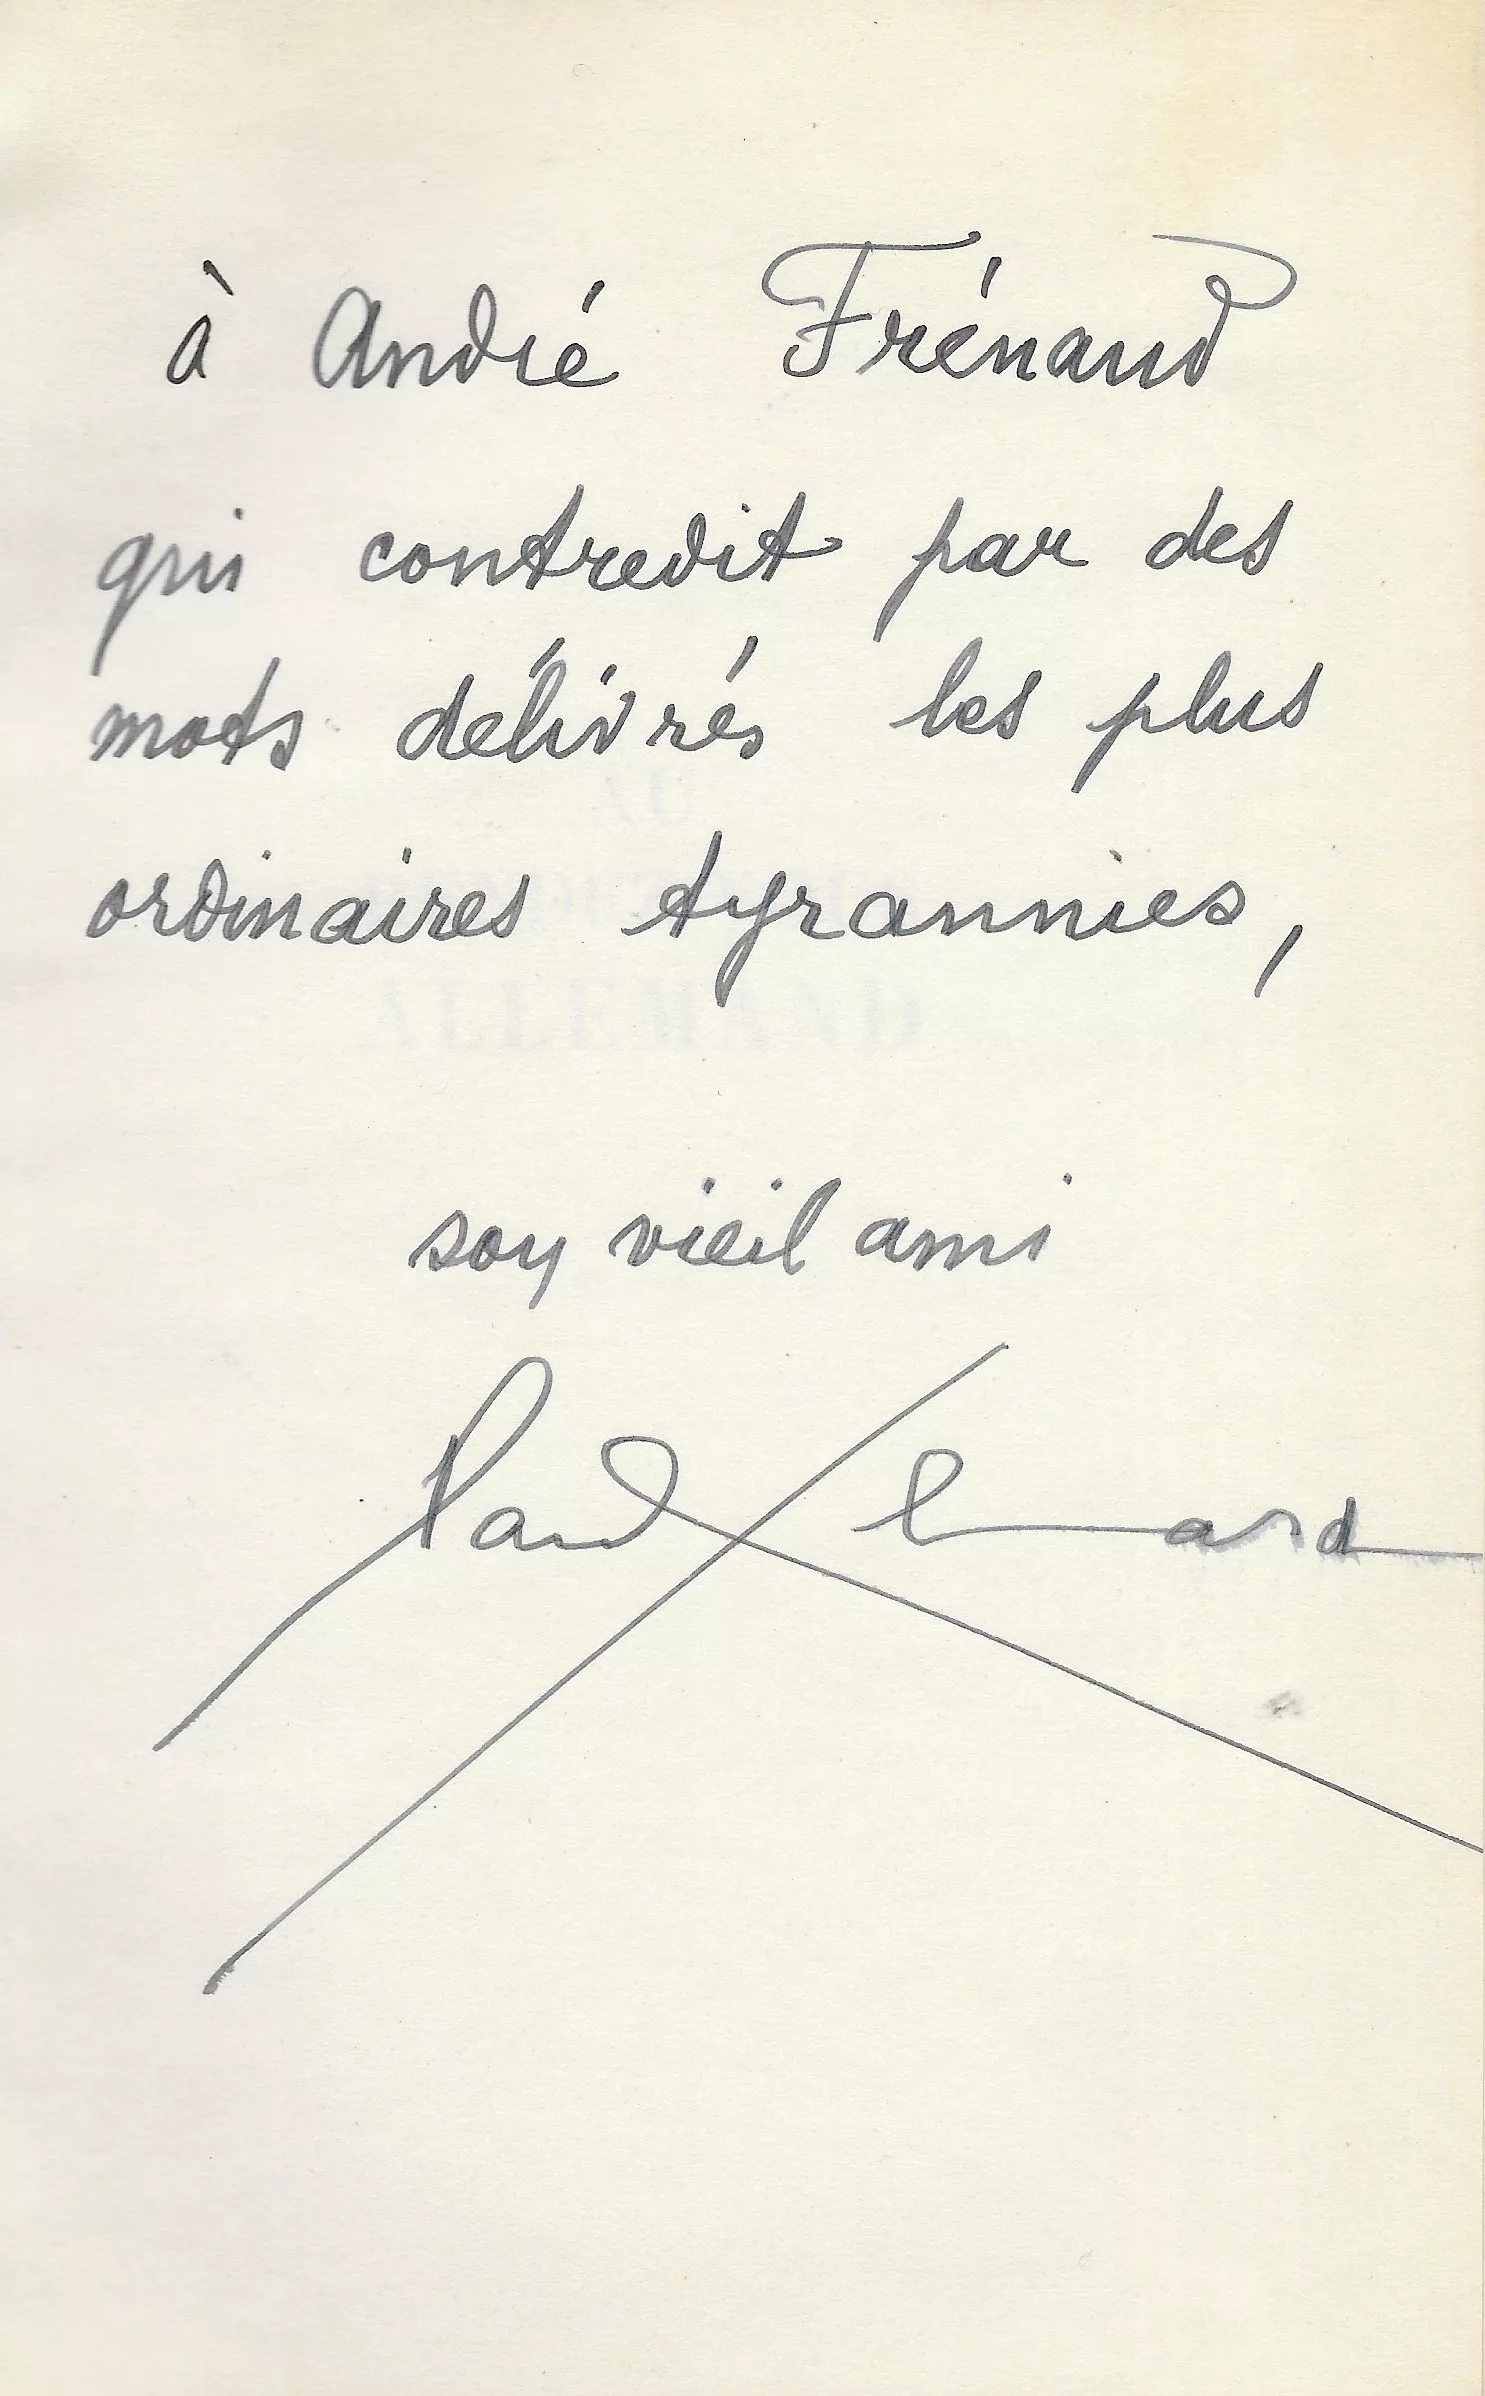 à André Frénaud
qui contredit par des
mots délivrés les plus
ordinaires tyrannies,
son vieil ami
Paul Eluard